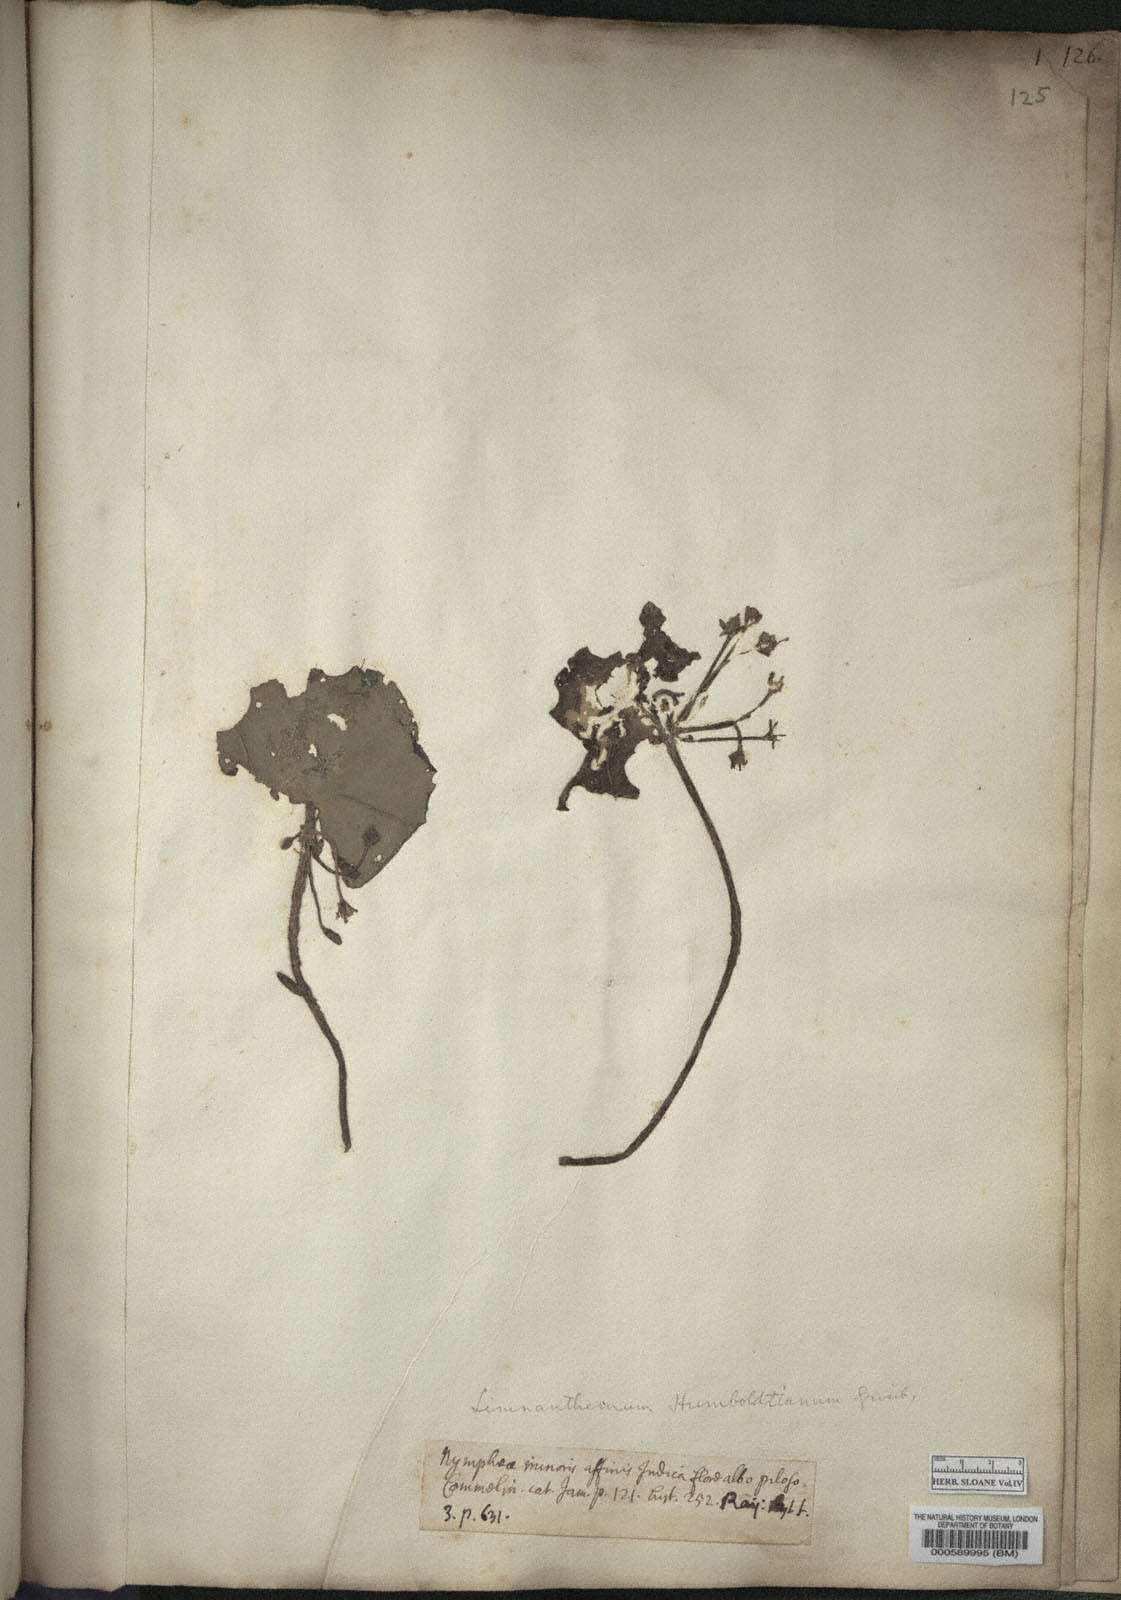 1 126.
125
Limnanthemum Humboldtianum Griseb.
Nymphææ minoris affinis Indica flore albo piloso.
Commelin. cat. Jam. p. 121. hist. 252. Raij:
3. p. 631.
HERB. SLOANE Vol.IV
THE NATURAL HISTORY MUSEUM, LONDON
DEPARTMENT OF BOTANY
000589995 (BM)